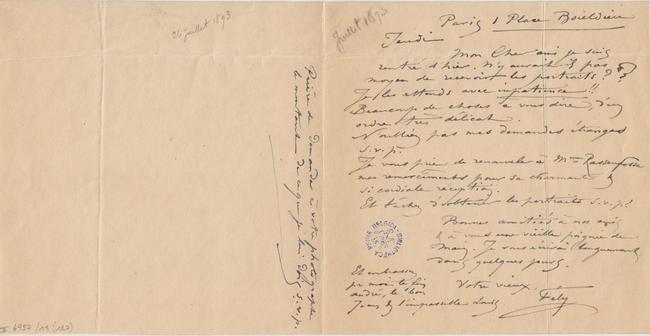 26 juillet 1893
Juillet 1893
Paris 1 Place Boieldieu
Jeudi
Mon Cher ami je suis
rentré d'hier. N'y aurait-il pas
moyen de recevoir les portraits??
Je les attends avec impatience!!
Beaucoup de choses à vous dire, d'un
ordre très délicat.
N'oubliez pas mes demandes étranges
s.v.p.
Je vous prie de renouveler à Mme Rassenfosse
mes remerciements pour sa charmante &
si cordiale réception.
Et tachez d'obtenir les portraits s.v.p?
Bonnes amitiés à nos amis
& à vous une vieille poignée de
main. Je vous écrirai longuement
dans quelques jours.
Votre vieux
Fely
Et embrassez
pr moi le
andré, le bon
Jean & l'impossible Louis
Prière de demander à votre photographe
le montant de ce que je lui dois s.v.p.
BIBLIOTHECA REGIA BELGICA
II 6957/19 (127)